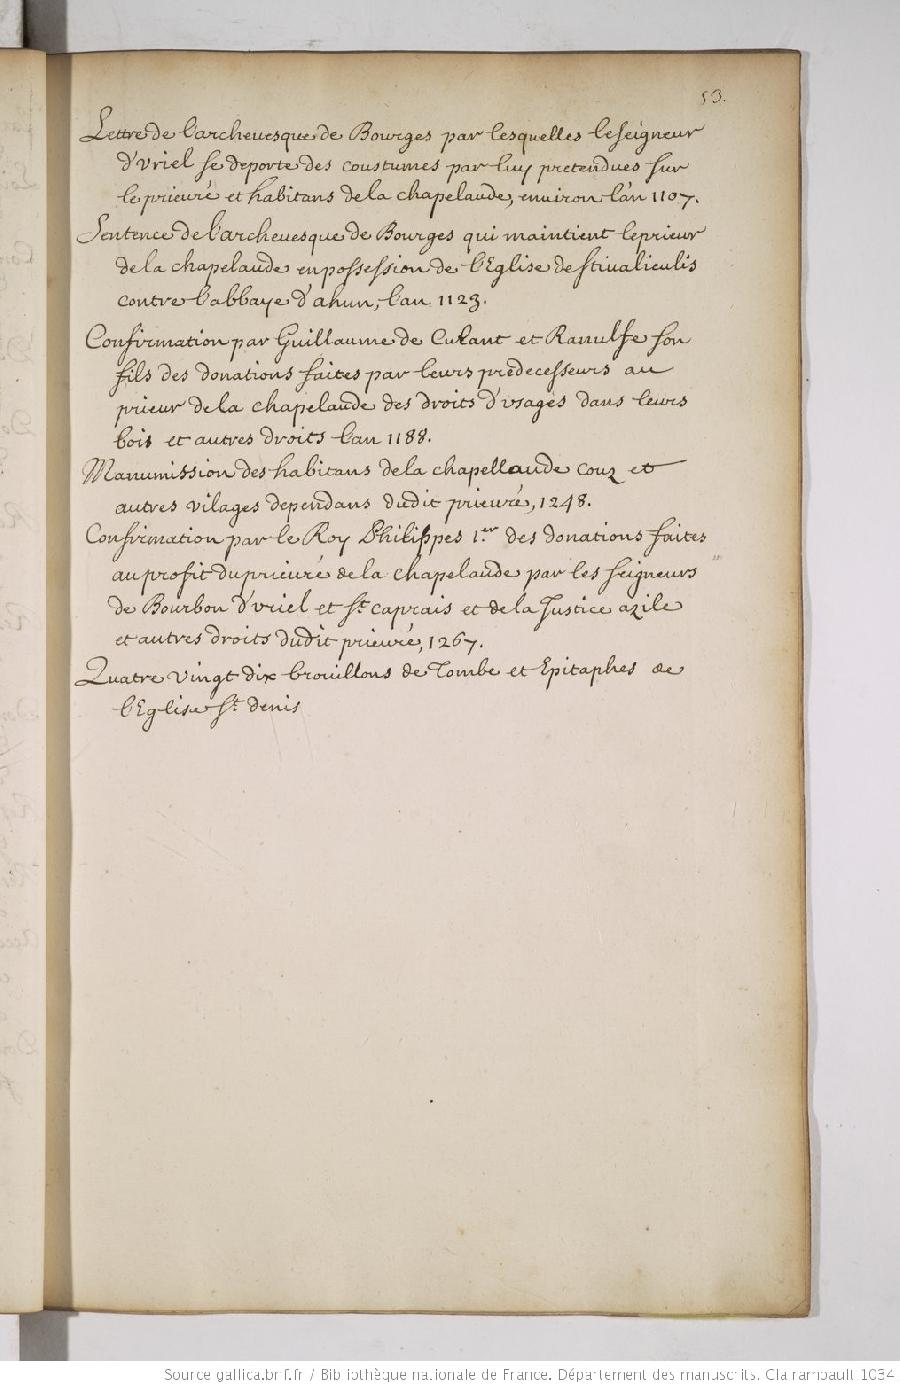 53.
Lettre de l'archeuesque de Bourges par lesquelles le seigneur
d'Vriel se deporte des coustumes par luy pretendues sur
le prieuré et habitans de la chapelaude, enuiron l'an 1107.
Sentence de l'archeuesque de Bourges qui maintient le prieur
de la chapelaude en possession de l'Eglise de stivaliculis
contre l'abbaye d'ahun, l'an 1123.
Confirmation par Guillaume de Culant et Ranulfe son
fils des donations faites par leurs predecesseurs au
prieur de la chapelaude des droits d'vsages dans leurs
bois et autres droits l'an 1188.
Manumission des habitans de la chapellaude couz et
autres vilages dependans dudit prieuré, 1248.
Confirmation par le Roy Philippes 1.er des donations faites
au profit du prieuré de la chapelaude par les seigneurs
de Bourbon d'vriel et st. caprais et de la Justice azile
et autres droits dudit prieuré, 1267.
Quatre vingt dix brouillons de Tombe et Epitaphes de
l'Eglise st. denis
Source gallica.bnf.fr / Bibliothèque nationale de France. Département des manuscrits. Clairambault 1034